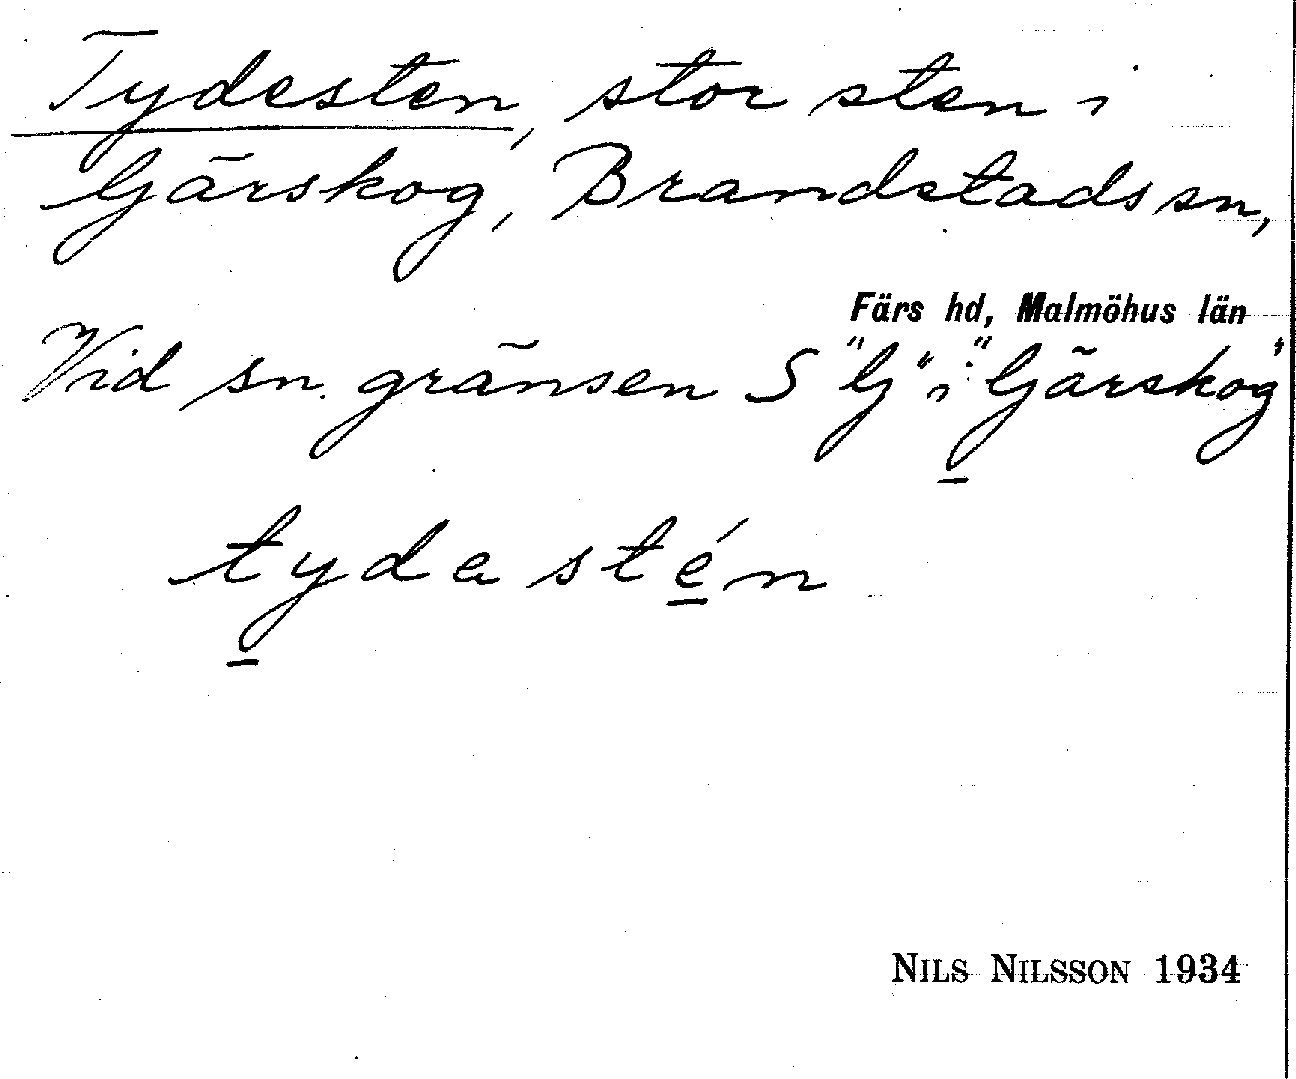 Tydesten, stor sten i
Gärskog, Brandstads sn,
Färs hd, Malmöhus län
Vid sn. gränsen S "G" i "Gärskog"
tydastén
NILS NILSSON 1934